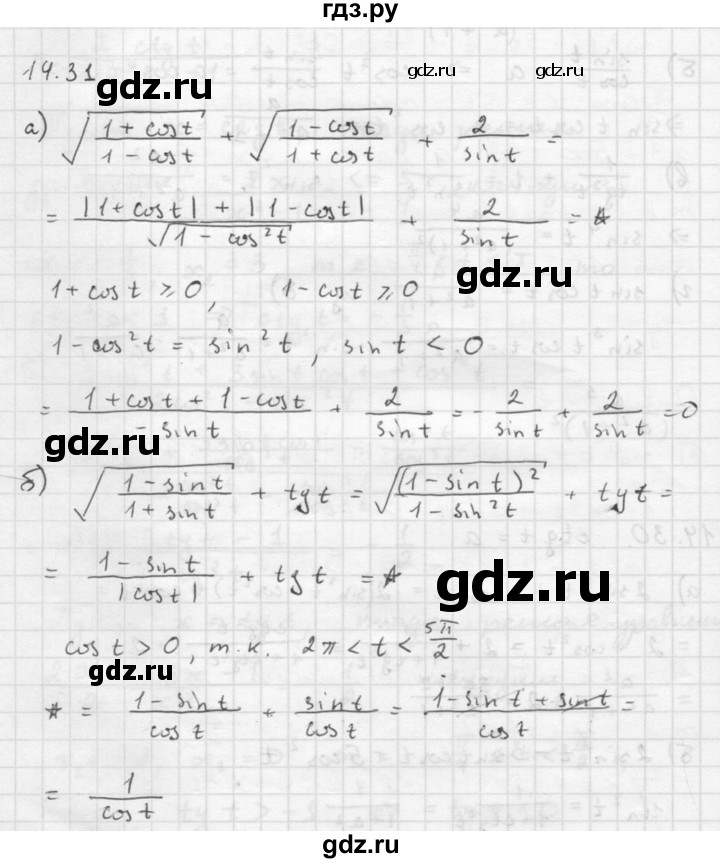 гдз.ру
14.31
gdz.ru
а) √((1 + cos t)/(1 - cos t)) + √((1 - cos t)/(1 + cos t)) + 2/(sin t) =
= (|1 + cos t| + |1 - cos t|)/√(1 - cos²t) + 2/(sin t) = *
gdz.ru
1 + cos t ⩾ 0, 1 - cos t ⩾ 0
1 - cos²t = sin²t, sin t < 0
= (1 + cos t + 1 - cos t)/(- sin t) + 2/(sin t) = - 2/(sin t) + 2/(sin t) = 0
gdz.ru
б) √((1 - sin t)/(1 + sin t)) + tg t = √((1 - sin t)²/(1 - sin²t)) + tg t =
= (1 - sin t)/|cos t| + tg t = *
gdz.ru
cos t > 0, т.к. 2π < t < 5π/2
* = (1 - sin t)/(cos t) + (sin t)/(cos t) = (1 - sin t + sin t)/(cos t) =
gdz.ru
= 1/(cos t)
gdz.ru
gdz.ru